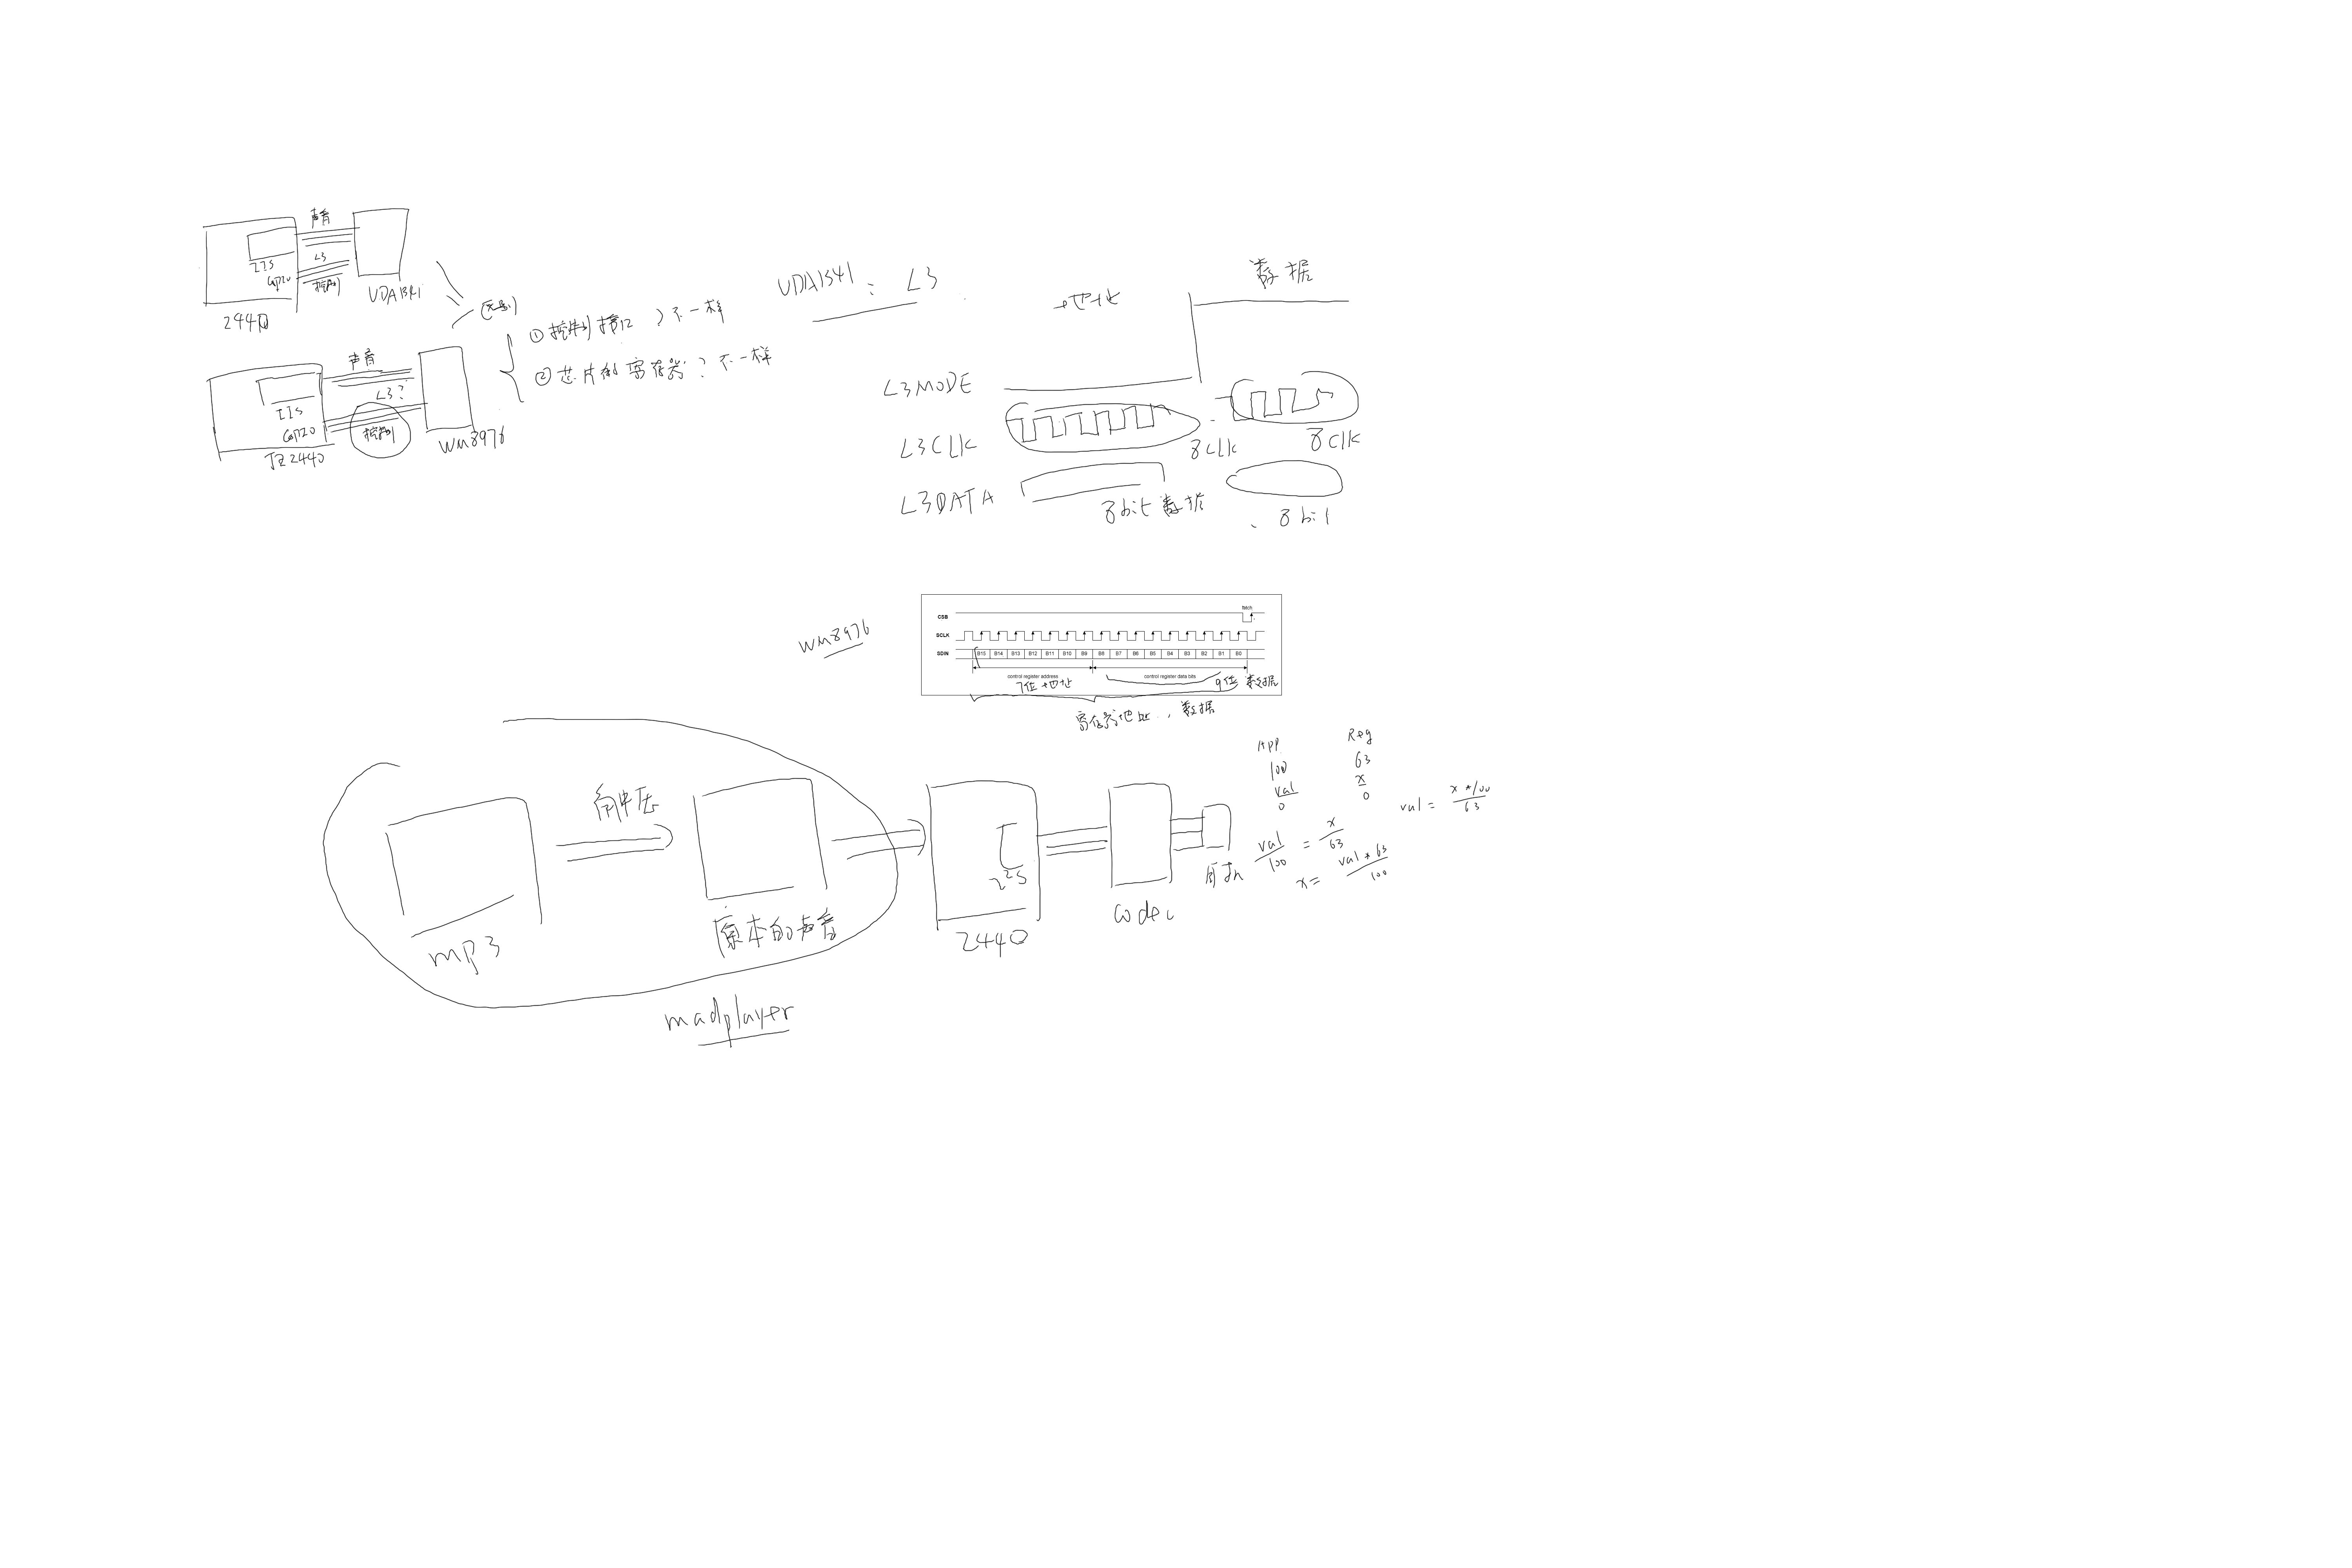 声音
IIS
L3
GPIO
控制
UDA1341
2440
区别
声音
IIS
L3?
GPIO
控制
WM8976
JZ2440
① 控制接口?不一样
② 芯片的寄存器?不一样
UDA1341: L3
地址
数据
L3MODE
L3CLK
8clk
8clk
L3DATA
8bit 数据
8bit
WM8976
latch
CSB
SCLK
SDIN B15 B14 B13 B12 B11 B10 B9 B8 B7 B6 B5 B4 B3 B2 B1 B0
control register address control register data bits
7位地址 9位 数据
寄存器地址, 数据
mp3
解压
原本的声音
madplayer
I2S
2440
codec
耳机
App Reg
100 63
val x
0 0
val/100 = x/63
x = val*63/100
val = x*100/63